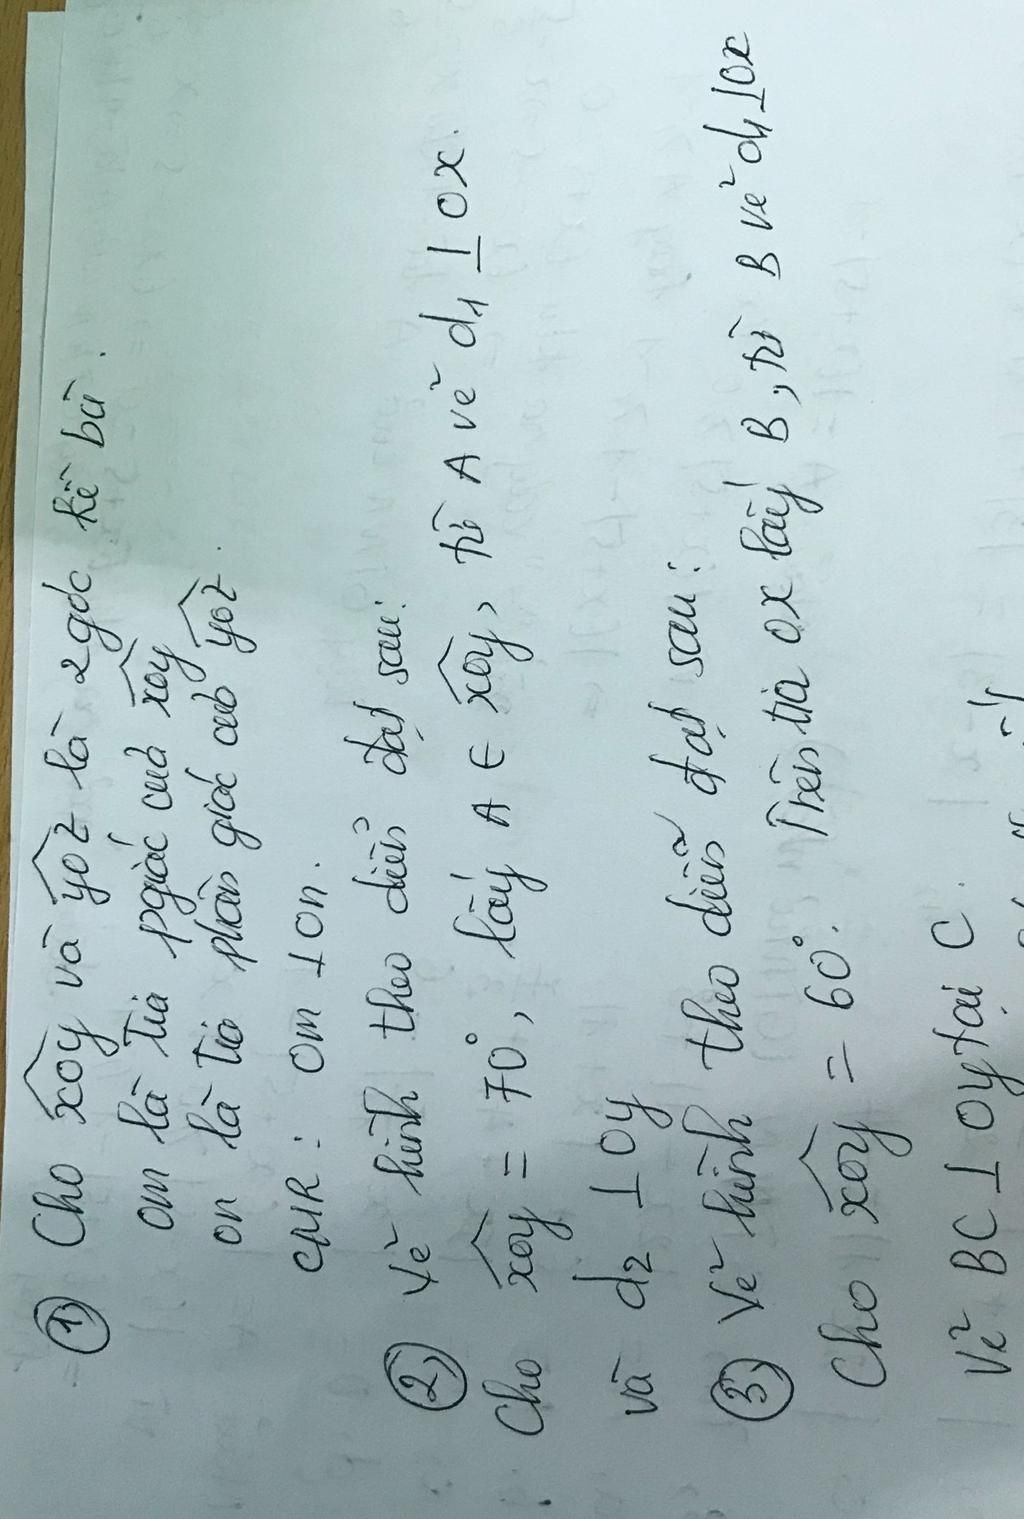 1) Cho xoy và yoz là 2 góc kề bù.
om là tia pgiác của xoy
on là tia phân giác của yoz.
CMR: om ⊥ on.
2) Vẽ hình theo diễn đạt sau:
Cho xoy = 70°, lấy A ∈ xoy, từ A vẽ d1 ⊥ ox.
và d2 ⊥ oy
3) Vẽ hình theo diễn đạt sau:
Cho xoy = 60°. Trên tia ox lấy B, từ B vẽ d1 ⊥ ox
Vẽ BC ⊥ oy tại C.